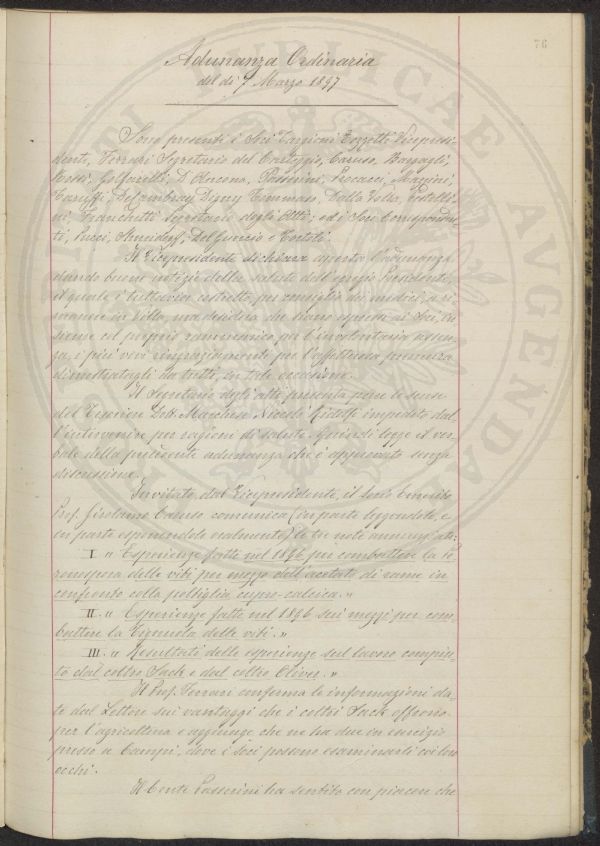 76
Adunanza Ordinaria
del dì 7 Marzo 1897
Sono presenti i Soci Targioni Tozzetti Vicepresi-
dente, Ferrari Segretario del Carteggio, Caruso, Bargagli,
Golfarelli, D'Ancona, Passerini, Procacci, Mazzini,
Caruffi, De Cambray Digny Tommaso, Dalla Volta,
Franchetti Segretario degli Atti; ed i Soci Corrisponden-
ti, Pucci, Del Guercio e Tortoli.
Il Vicepresidente dichiara aperta l'adunanza
dando buone notizie della salute dell'egregio Presidente,
il quale è tuttavia costretto, per consiglio dei medici, a ri-
manere in letto, ma desidera che siano espressi ai Soci, in-
sieme col proprio rammarico, per l'involontaria assen-
za, i più vivi ringraziamenti per l'affettuosa premura
dimostratagli da tutti, in tale occasione.
Il Segretario degli atti presenta pure le scuse
del Tesoriere Dott. Marchese Niccolò Ridolfi impedito dal-
l'intervenire per ragioni di salute. Quindi legge il ver-
bale della precedente adunanza che è approvato senza
discussione.
Invitato dal Vicepresidente, il Socio Emerito
Prof. Girolamo Caruso comunica (in parte leggendole, e
in parte esponendole oralmente) le tre note annunziate:
I. "Esperienze fatte nel 1896 per combattere la Pe-
ronospora delle viti per mezzo dell'acetato di rame in
confronto colla poltiglia cupro-calcica."
II. "Esperienze fatte nel 1896 sui mezzi per com-
battere la Tignuola delle viti."
III. "Resultati delle esperienze sul lavoro compiu-
to dal coltro Sack e dal coltro Oliver."
Il Prof. Ferrari conferma le informazioni da-
te dal Lettore sui vantaggi che i coltri Sack offrono
per l'agricoltura e aggiunge che ne ha due in esercizio
presso a Campi, dove i Soci possono esaminarli coi loro
occhi.
Il Conte Passerini ha sentito con piacere che